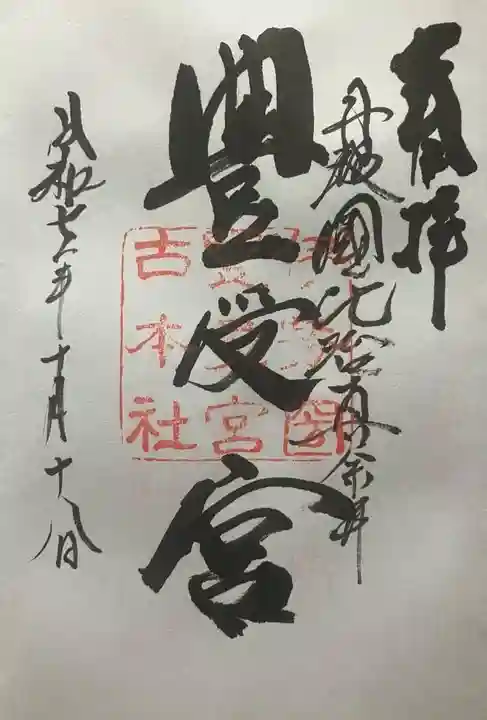 奉拝
丹波國比治真奈井
豐受宮
令和七年十月十八日
受宮
古本社